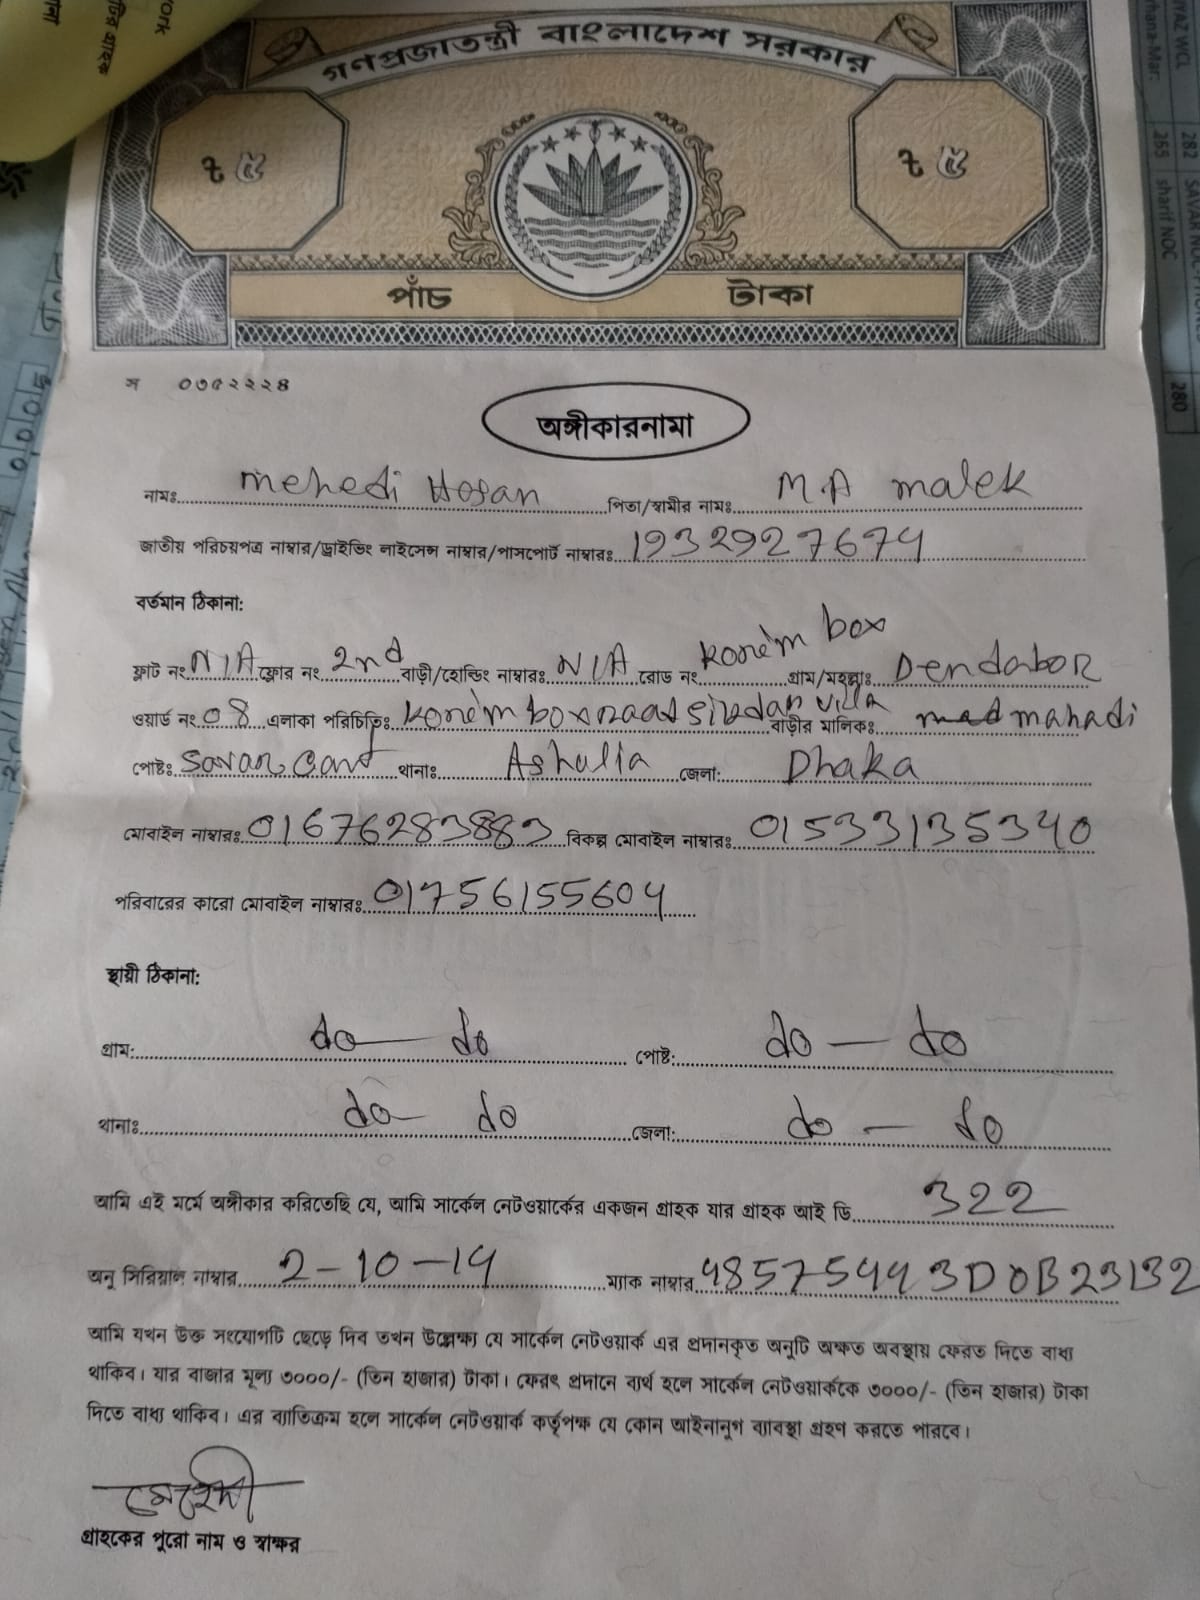 গণপ্রজাতন্ত্রী বাংলাদেশ সরকার
৳ ৫ ৳ ৫
পাঁচ টাকা
স ০৩৫২২২৪
অঙ্গীকারনামা
নামঃ mehedi Hosan পিতা/স্বামীর নামঃ M A malek
জাতীয় পরিচয়পত্র নাম্বার/ড্রাইভিং লাইসেন্স নাম্বার/পাসপোর্ট নাম্বারঃ 1932927674
বর্তমান ঠিকানা:
ফ্লাট নং N/A ফ্লোর নং 2nd বাড়ী/হোল্ডিং নাম্বারঃ N/A রোড নং korem box গ্রাম/মহল্লাঃ Dendabor
ওয়ার্ড নং 08 এলাকা পরিচিতিঃ korem box villa বাড়ীর মালিকঃ mahadi
পোষ্টঃ Savar Cant থানাঃ Ashulia জেলা: Dhaka
মোবাইল নাম্বারঃ 01676283883 বিকল্প মোবাইল নাম্বারঃ 01533135340
পরিবারের কারো মোবাইল নাম্বারঃ 01756155604
স্থায়ী ঠিকানা:
গ্রাম: do — do পোষ্ট: do — do
থানাঃ do — do জেলা: do — do
আমি এই মর্মে অঙ্গীকার করিতেছি যে, আমি সার্কেল নেটওয়ার্কের একজন গ্রাহক যার গ্রাহক আই ডি 322
অনু সিরিয়াল নাম্বার 2-10-14 ম্যাক নাম্বার 485754443D0B23132
আমি যখন উক্ত সংযোগটি ছেড়ে দিব তখন উল্লেক্ষ্য যে সার্কেল নেটওয়ার্ক এর প্রদানকৃত অনুটি অক্ষত অবস্থায় ফেরত দিতে বাধ্য
থাকিব। যার বাজার মূল্য ৩০০০/- (তিন হাজার) টাকা। ফেরৎ প্রদানে ব্যর্থ হলে সার্কেল নেটওয়ার্ককে ৩০০০/- (তিন হাজার) টাকা
দিতে বাধ্য থাকিব। এর ব্যাতিক্রম হলে সার্কেল নেটওয়ার্ক কর্তৃপক্ষ যে কোন আইনানুগ ব্যাবস্থা গ্রহণ করতে পারবে।
মেহেদী
গ্রাহকের পুরো নাম ও স্বাক্ষর
282
255 sharif NOC
280